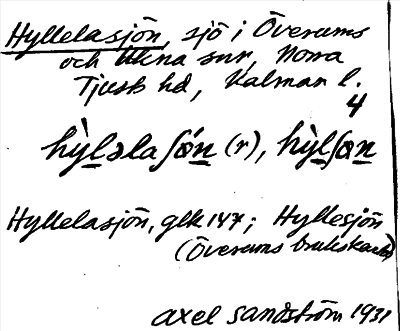 Hyllelasjön, sjö i Överums
och Ukna snr, Norra
Tjusts hd, Kalmar l.
4
hỳlǝla ʃǿn (r), hỳlʃøn
Hyllelasjön, glk 147; Hyllesjön
(Överums brukskarta)
Axel Sandström 1931